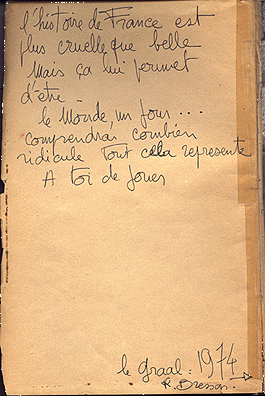 l'histoire de France est
plus cruelle que belle
Mais ça lui permet
d'être -
le Monde, un jour ...
comprendras combien
ridicule tout cela represente
A toi de jouer
le graal. 1974
R. Bresson.